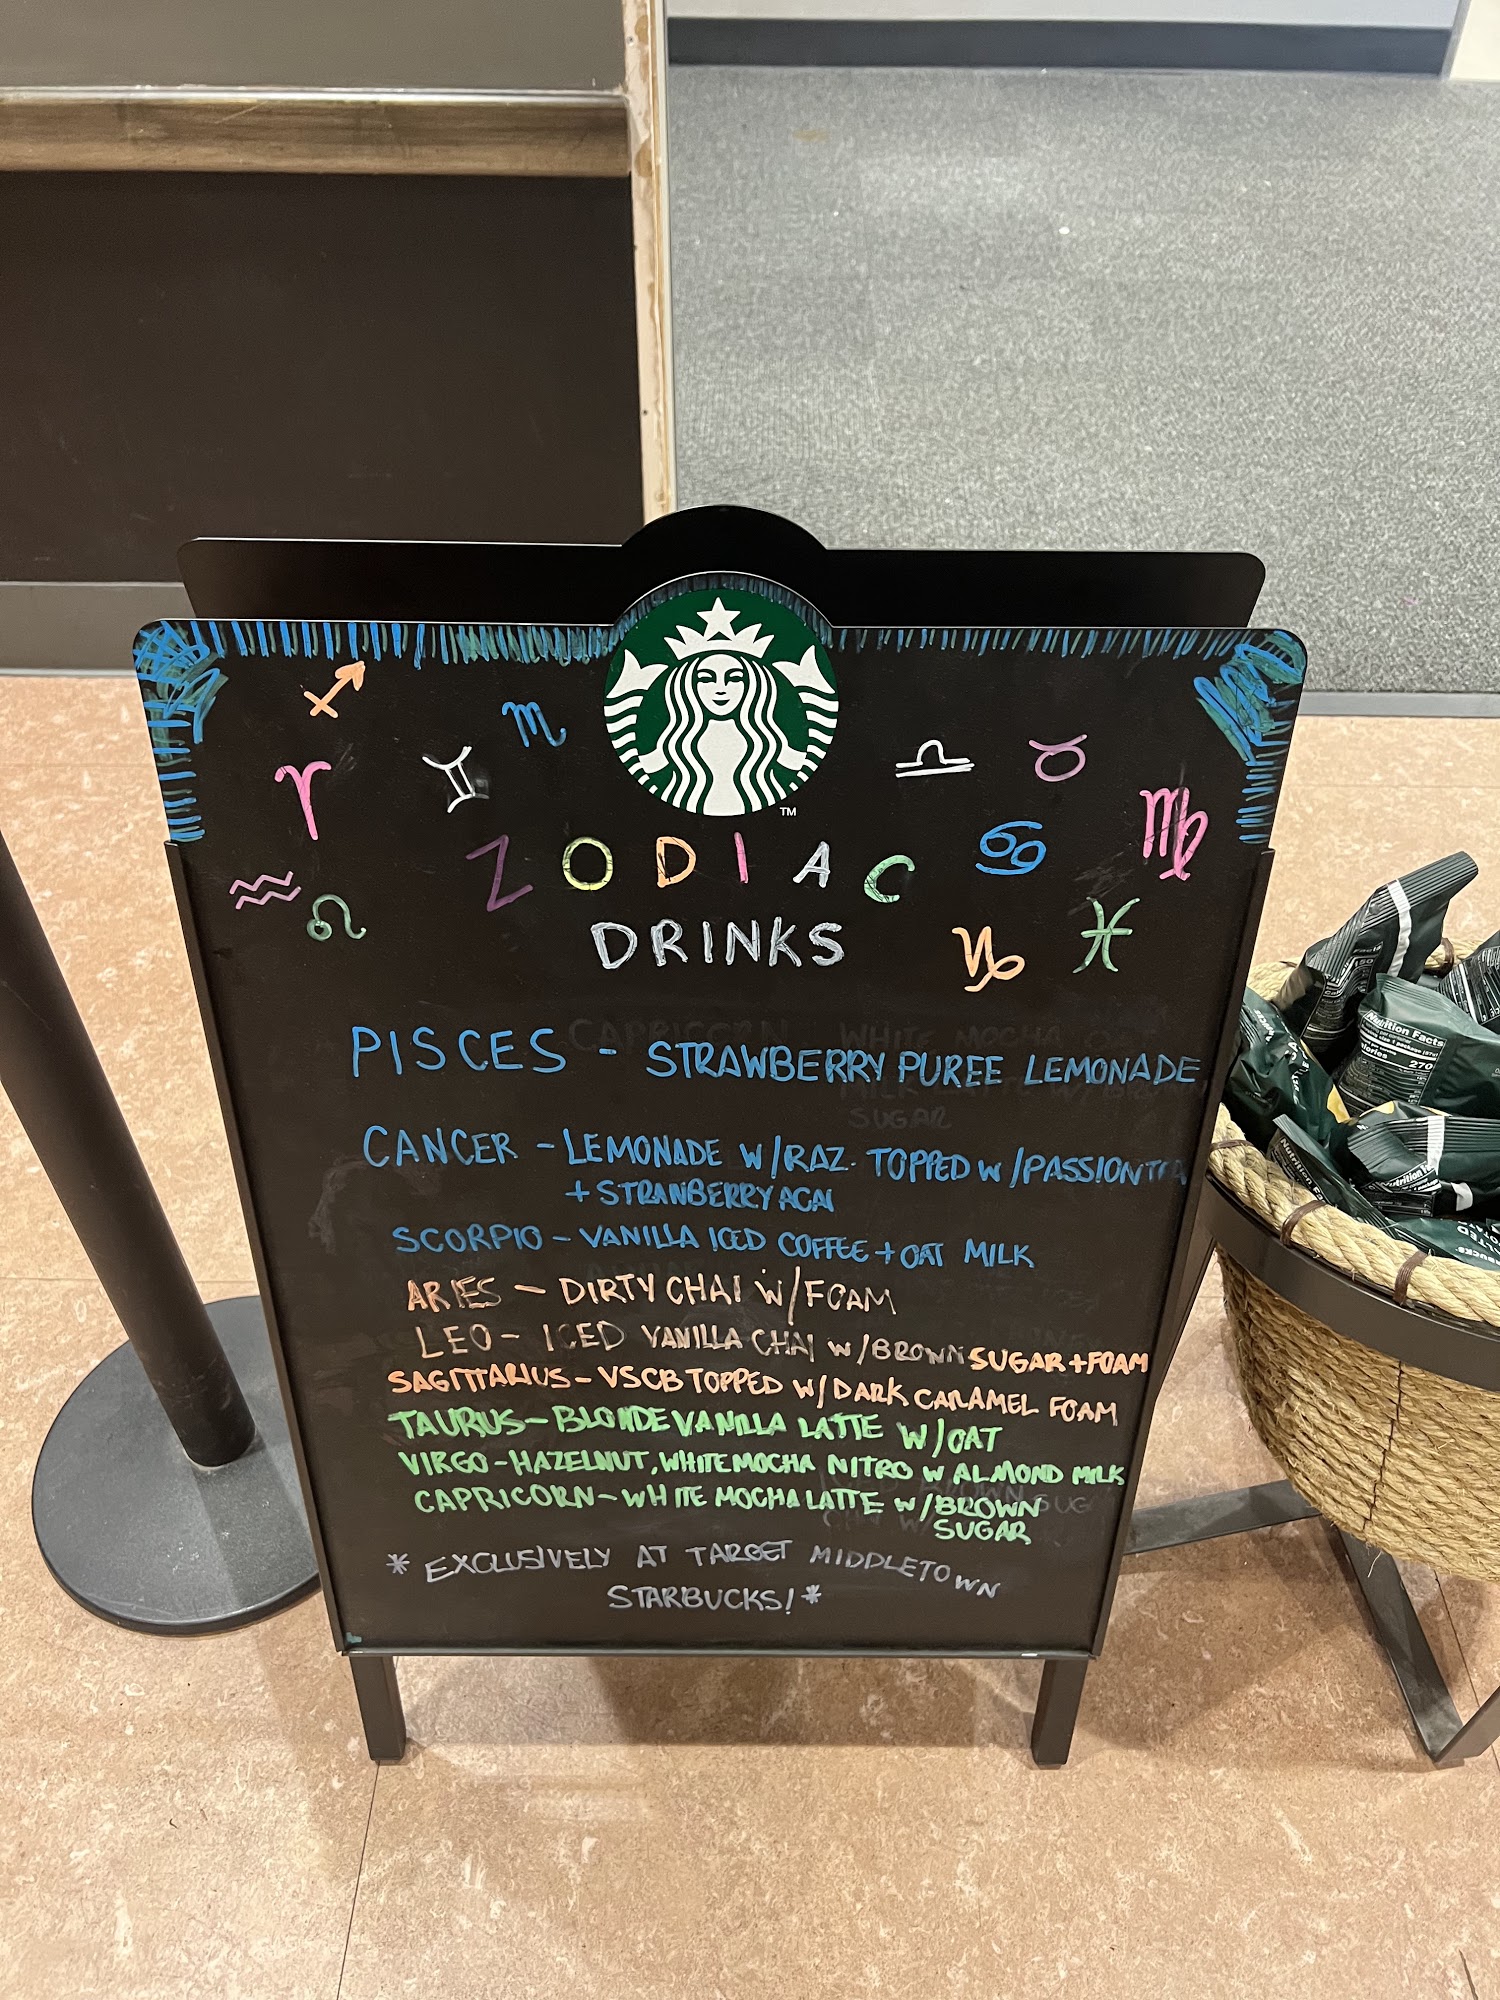 TM
ZODIAC
DRINKS
PISCES - STRAWBERRY PUREE LEMONADE
CANCER - LEMONADE W/RAZ. TOPPED W/PASSION TEA
+ STRAWBERRY ACAI
SCORPIO - VANILLA ICED COFFEE + OAT MILK
ARIES - DIRTY CHAI W/FOAM
LEO - ICED VANILLA CHAI W/BROWN SUGAR + FOAM
SAGITTARIUS - VSCB TOPPED W/DARK CARAMEL FOAM
TAURUS - BLONDE VANILLA LATTE W/OAT
VIRGO - HAZELNUT, WHITE MOCHA NITRO W ALMOND MILK
CAPRICORN - WHITE MOCHA LATTE W/BROWN
SUGAR
* EXCLUSIVELY AT TARGET MIDDLETOWN
STARBUCKS! *
Nutrition Facts
270